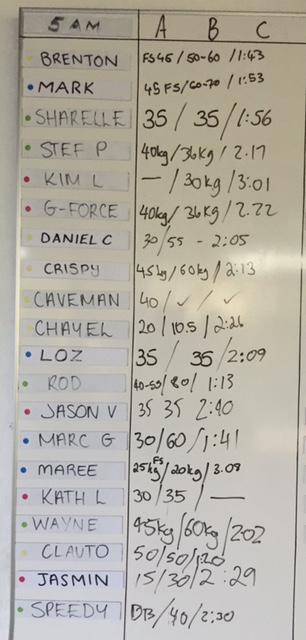 5 AM A B C
BRENTON FS45 / 50-60 / 1:43
MARK 45 FS/60-70 / 1:53
SHARELLE 35 / 35 / 1:56
STEF P 40kg / 36kg / 2.17
KIM L — / 30kg / 3:01
G-FORCE 40kg / 36kg / 2.22
DANIEL C 30/55 - 2:05
CRISPY 45kg / 60kg / 2:13
CAVEMAN 40 / ✓ / ✓
CHAYEL 20 / 10.5 / 2:26
LOZ 35 / 35 / 2:09
ROD 40-50/ 80 / 1:13
JASON V 35 35 2:40
MARC G 30/60 / 1:41
MAREE 25kg FS / 20kg / 3.08
KATH L 30 / 35 / —
WAYNE 45kg / 60kg / 202
CLAUTO 50/50/1:20
JASMIN 15/30/2:29
SPEEDY DB / 40 / 2:30